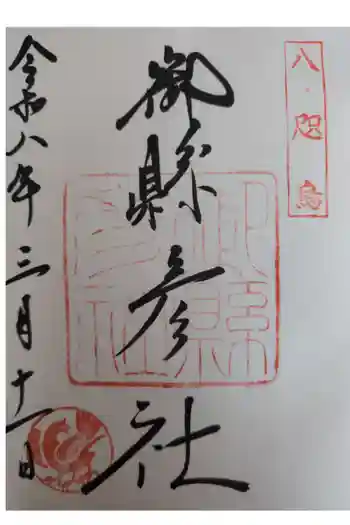 八咫烏
御縣彦社
令和八年三月十一日